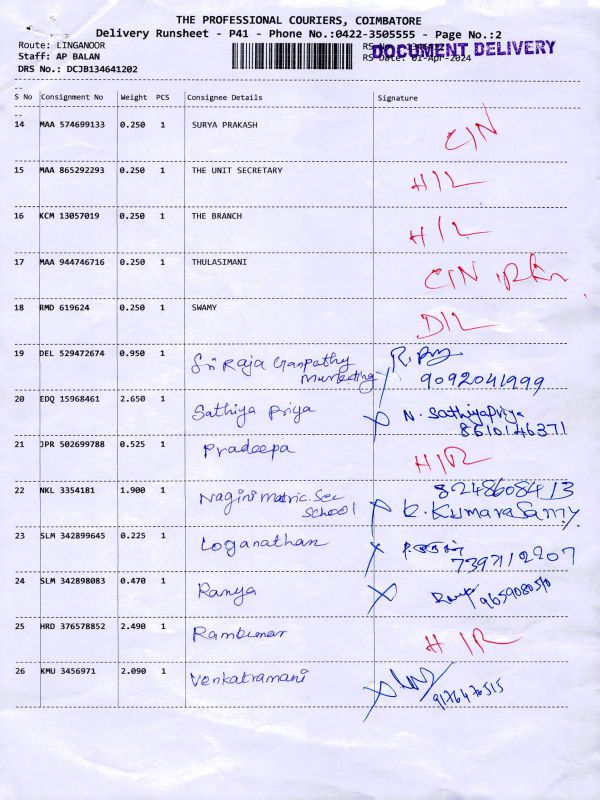 THE PROFESSIONAL COURIERS, COIMBATORE
Delivery Runsheet - P41 - Phone No.:0422-3505555 - Page No.:2
Route: LINGANOOR
Staff: AP BALAN
DRS No.: DCJB134641202
RS
DOCUMENT DELIVERY
RS Date: 01-Apr-2024
S No Consignment No Weight PCS Consignee Details Signature
14 MAA 574699133 0.250 1 SURYA PRAKASH C/N
15 MAA 865292293 0.250 1 THE UNIT SECRETARY H/L
16 KCM 13057019 0.250 1 THE BRANCH H/L
17 MAA 944746716 0.250 1 THULASIMANI C/N
18 RMD 619624 0.250 1 SWAMY D/L
19 DEL 529472674 0.950 1 Sri Raja Ganpathy
Murketing 9092041999
20 EDQ 15968461 2.650 1 Sathiya priya N. Sathiyapriya
8610146371
21 JPR 502699788 0.525 1 Pradeepa
22 NKL 3354181 1.900 1 Nagini Matric. Sec School 8248608413
K. Kumarasamy
23 SLM 342899645 0.225 1 Loganathan
7397112207
24 SLM 342898083 0.470 1 Ranya
25 HRD 376578852 2.490 1 Ramkumar
26 KMU 3456971 2.090 1 Venkatramani
9176470515